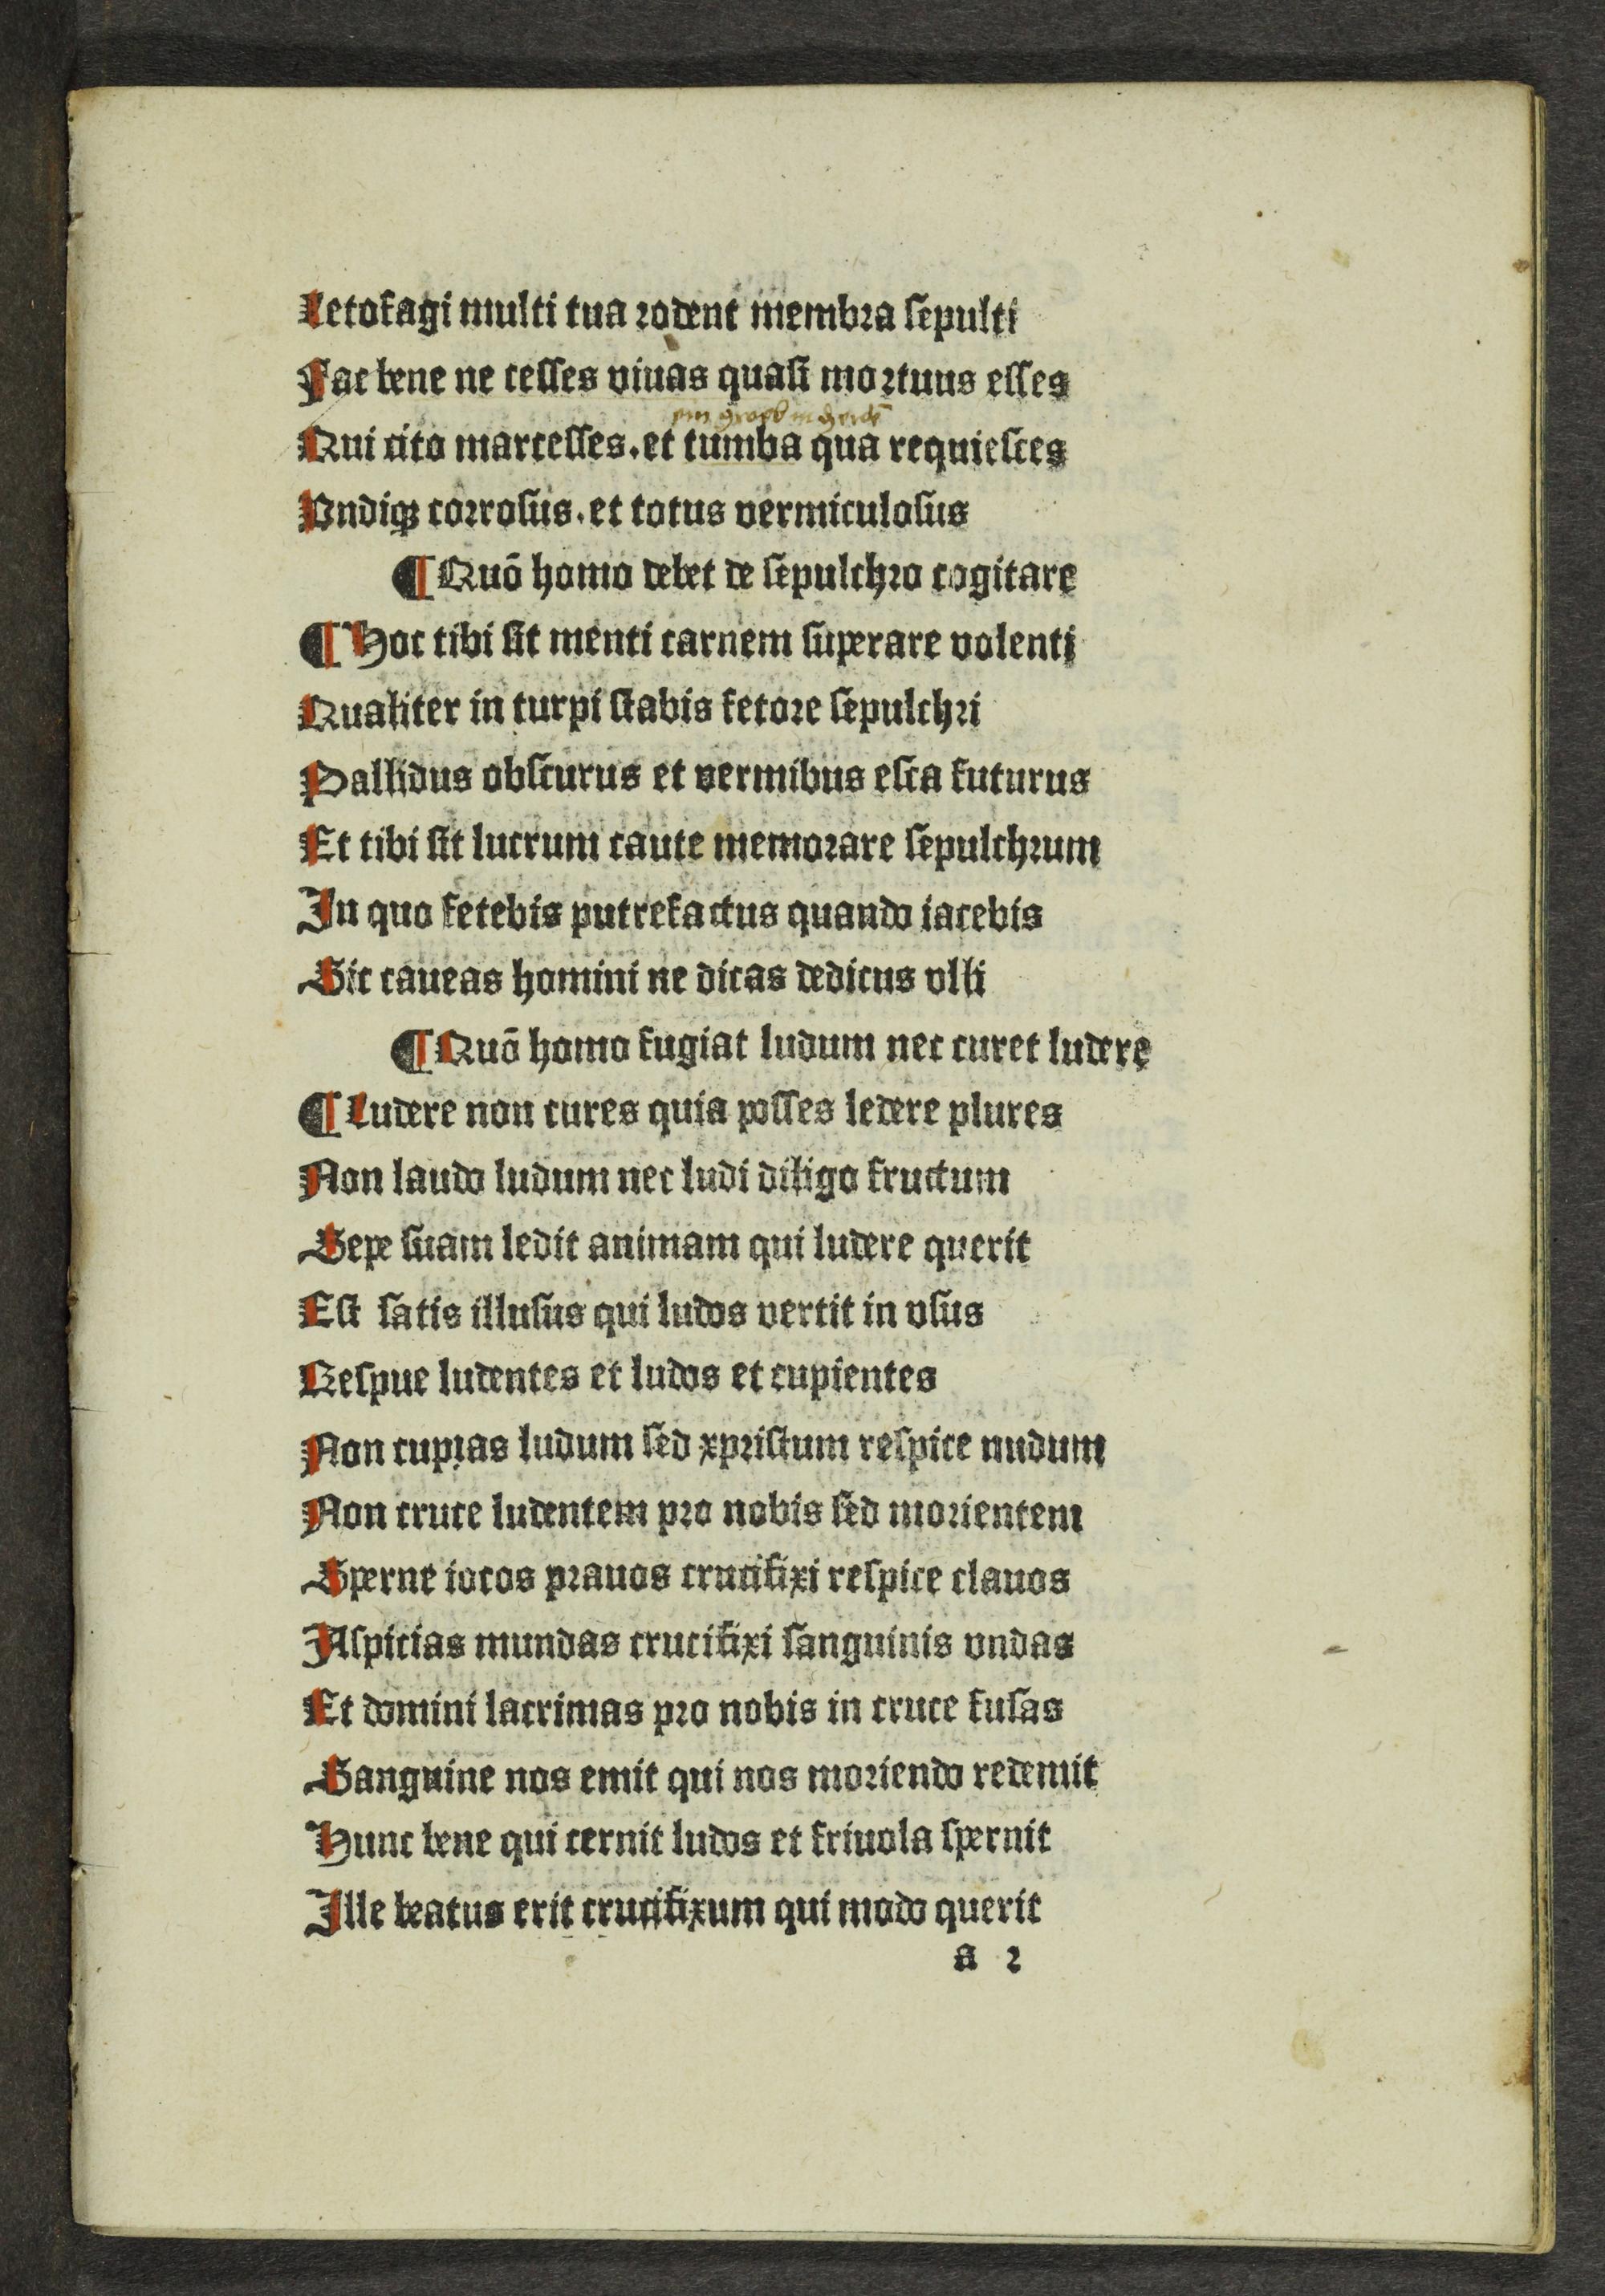 Letofagi multi tua rodent membra ſepulti
Fac bene ne ceſſes viuas quaſi mortuus eſſes
Qui cito marceſſes.et tumba qua requieſces
Vndiqꝫ corroſus.et totus vermiculoſus
¶ Quō homo debet de ſepulchro cogitare
¶ Hoc tibi ſit menti carnem ſuperare volenti
Qualiter in turpi ſtabis fetore ſepulchri
Pallidus obſcurus et vermibus eſca futurus
Et tibi ſit lucrum caute memorare ſepulchrum
In quo fetebis putrefactus quando iacebis
Sic caueas homini ne dicas dedicus vlli
¶ Quō homo fugiat ludum nec curet ludere
¶ Ludere non cures quia poſſes ledere plures
Non laudo ludum nec ludi diligo fructum
Sepe ſuam ledit animam qui ludere querit
Eſt ſatis illuſus qui ludos vertit in vſus
Reſpue ludentes et ludos et cupientes
Non cupias ludum ſed xpriſtum reſpice nudum
Non cruce ludentem pro nobis ſed morientem
Sperne iocos prauos crucifixi reſpice clauos
Aſpicias mundas crucifixi ſanguinis vndas
Et domini lacrimas pro nobis in cruce fuſas
Sanguine nos emit qui nos moriendo redemit
Hunc bene qui cernit ludos et friuola ſpernit
Ille beatus erit crucifixum qui modo querit
a 2